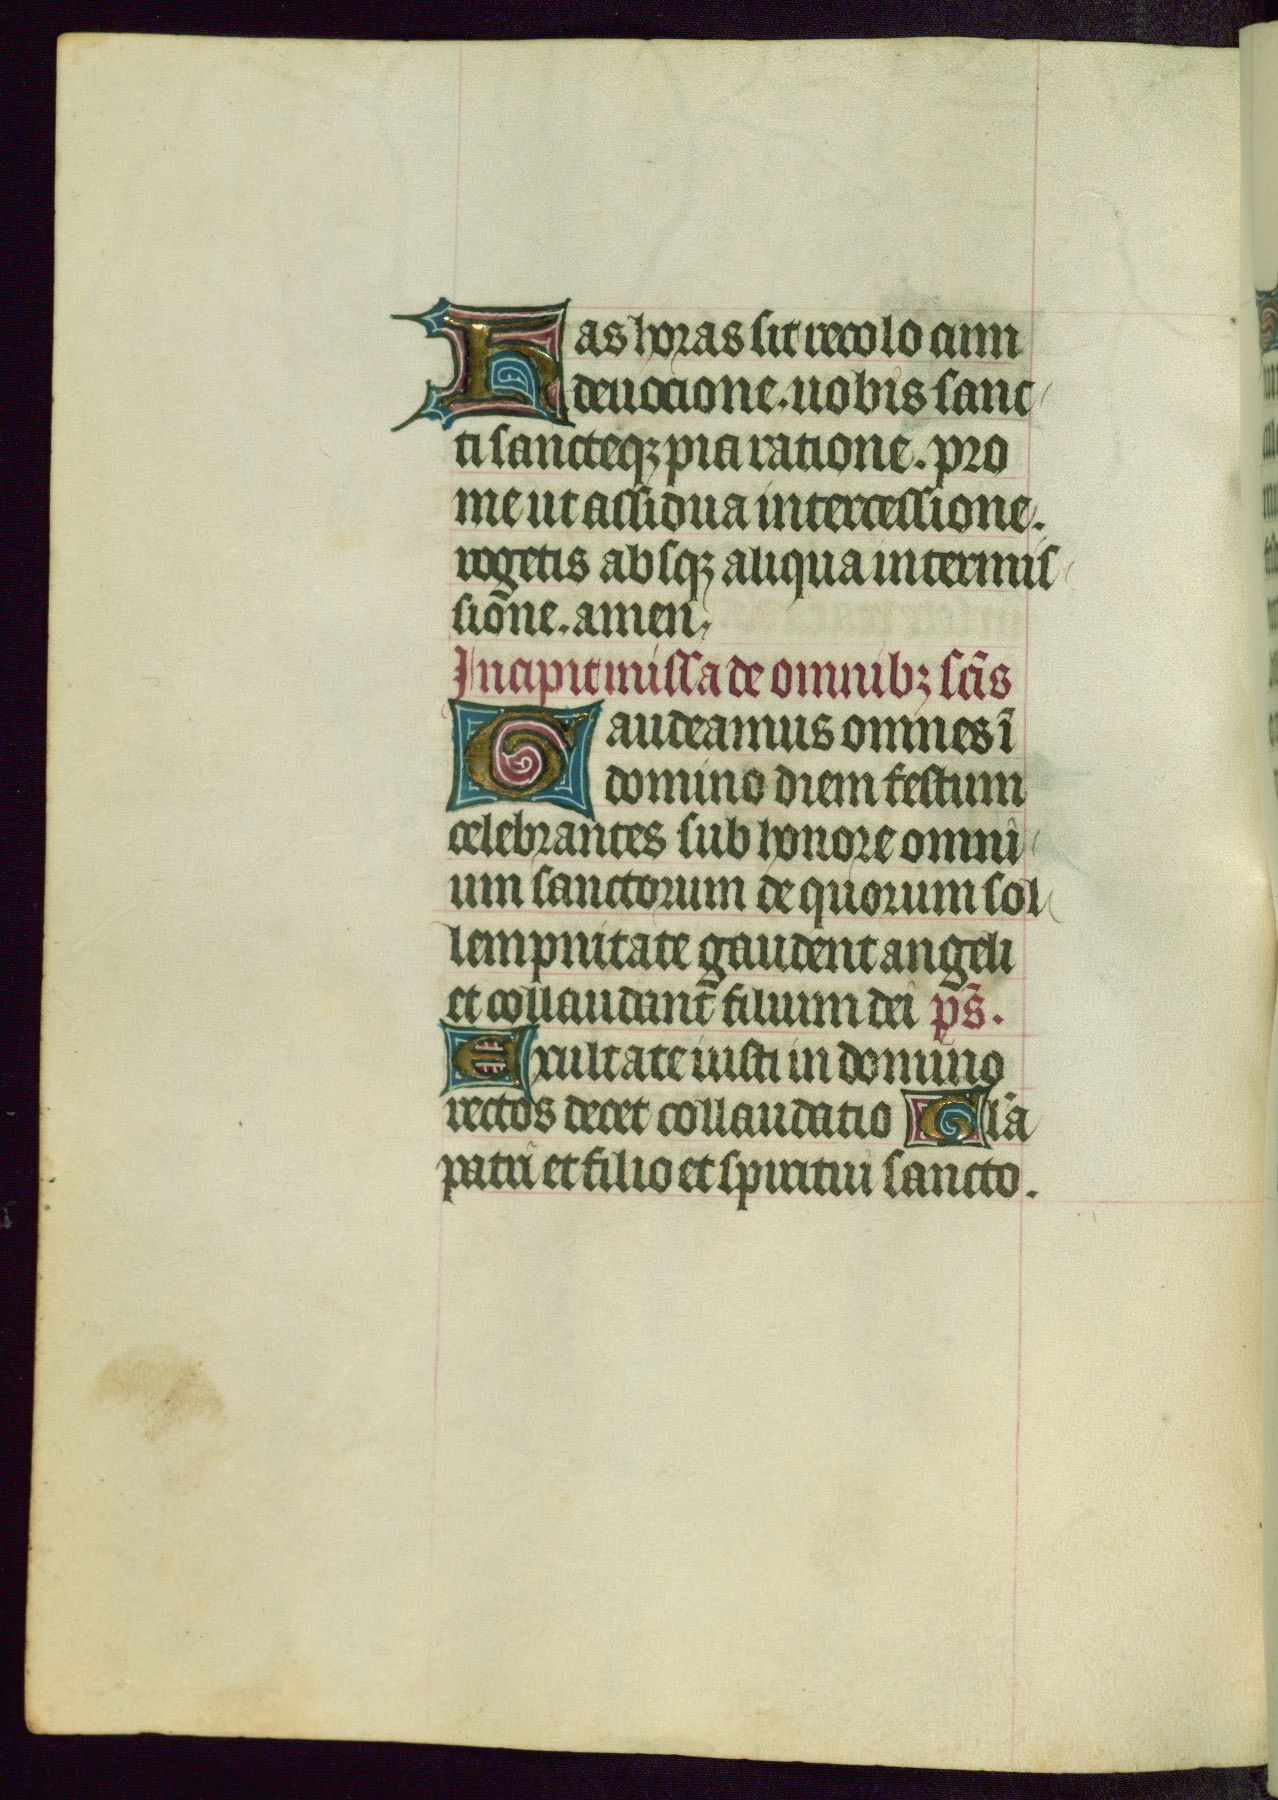 Has horas sic recolo cum
deuocione. uobis sanc
ti sancteqꝫ pia ratione. pro
me ut assidua intercessione.
rogetis absqꝫ aliqua intermis
siōne. amen.
Incipit missa de omnibꝫ sc̄is
Gaudeamus omnes ī
domino diem festum
celebrantes sub honore omni
um sanctorum de quorum sol
lempnitate gaudent angeli
et collaudant̄ filium dei p̄s̄.
Exultate iusti in domino
rectos decet collaudatio Gl̄a
patri et filio et spiritui sancto.